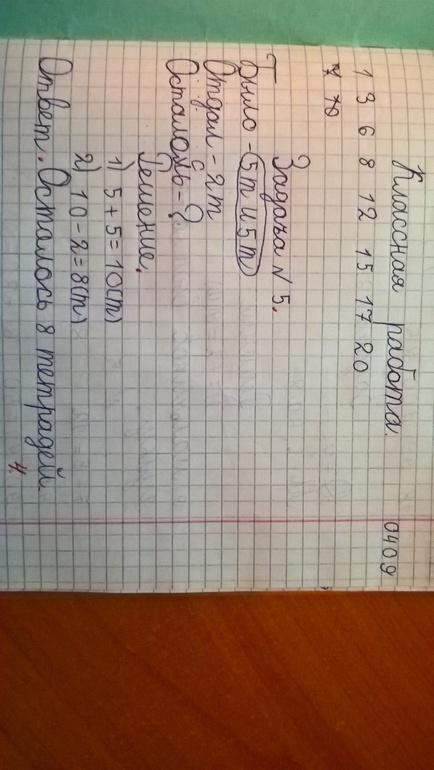 0409
Классная работа.
1 3 6 8 12 15 17 20
Задача N 5.
Было - 5т и 5т
Отдал - 2т
Осталось - ?
Решение.
1) 5+5=10(т)
2) 10-2=8(т)
Ответ. Осталось 8 тетрадей.
4.